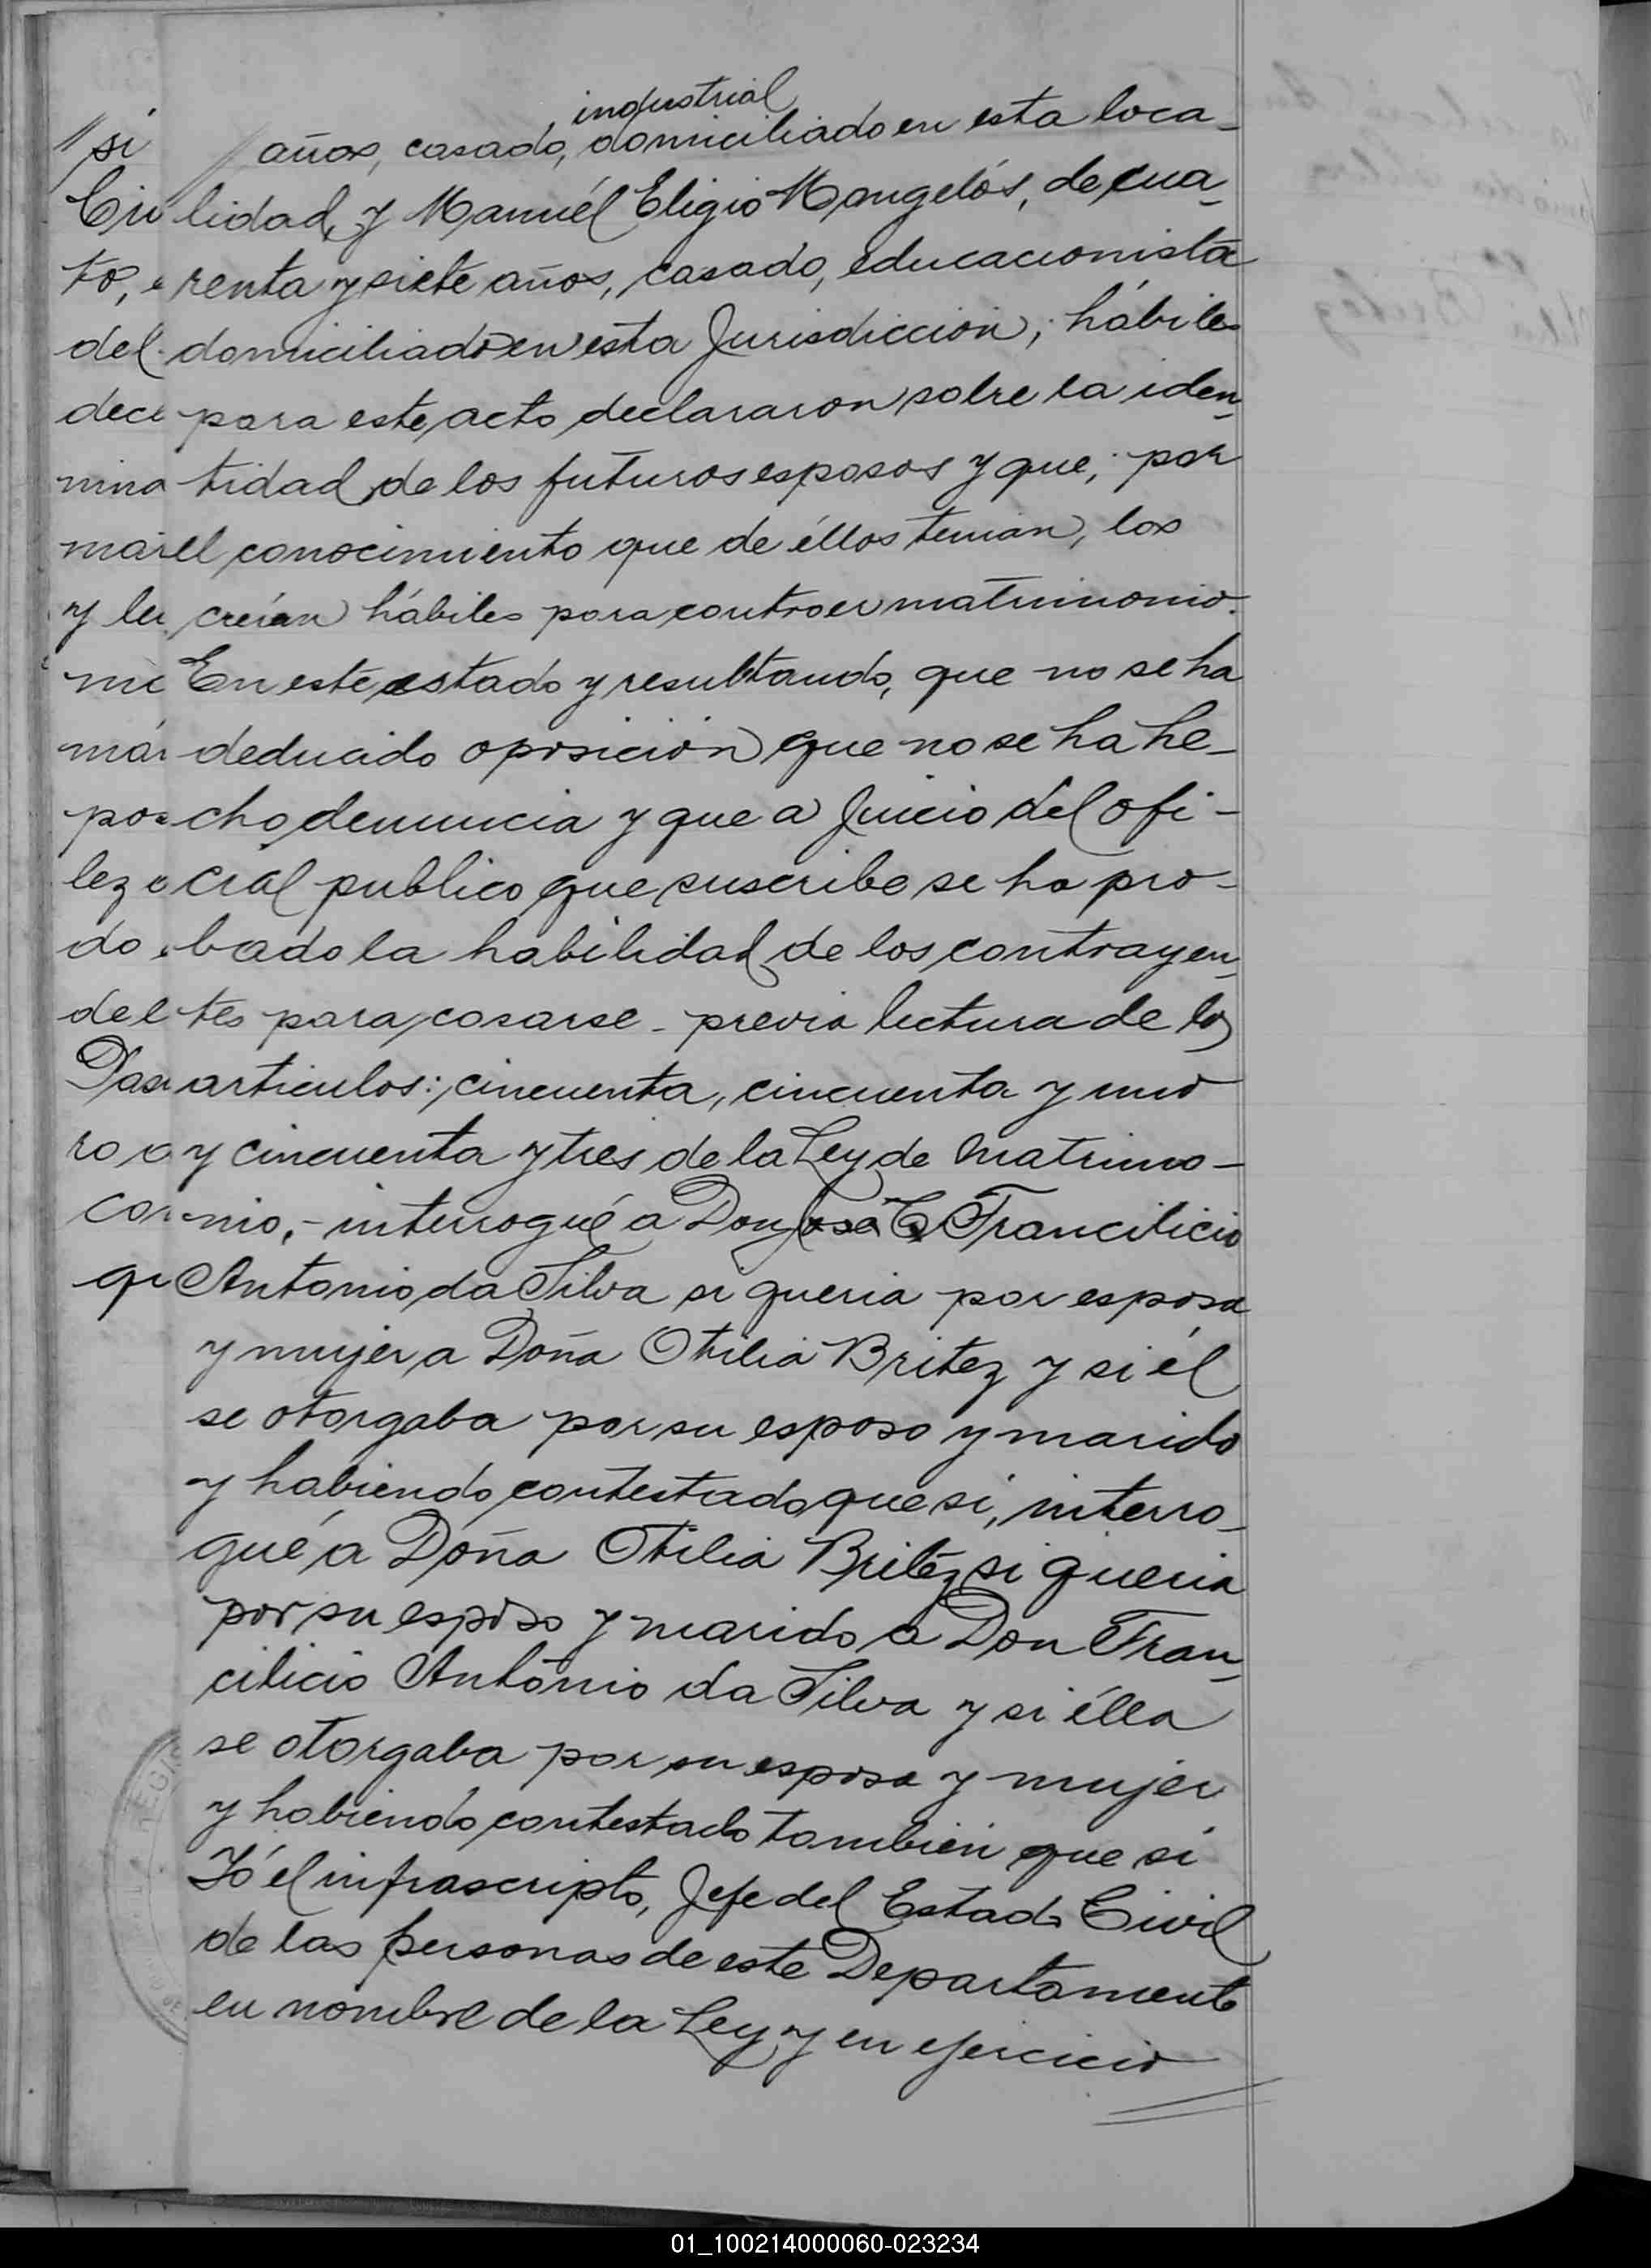 industrial
// años, casado, domiciliado en esta loca-
lidad, y Manuél Eligio Mongelós, de cua-
renta y siete años, casado, educacionista
domiciliado en esta Jurisdicción; hábiles
para este acto declararon sobre la iden-
tidad de los futuros esposos y que; por
el conocimiento que de éllos tenian, los
creían hábiles para contraer matrimonio.
En este estado y resultando, que no se ha
deducido oposición que no se ha he-
cho denuncia y que a Juicio del ofi-
cial publico que suscribe se ha pro-
bado la habilidad de los contrayen-
tes para casarse - previa lectura de los
articulos: cincuenta, cincuenta y uno
y cincuenta y tres de la Ley de Matrimo-
nio, - interrogué a Don José Francilicio
Antonio da Silva si queria por esposa
y mujer a Doña Otilia Britez y si él
se otorgaba por su esposo y marido
y habiendo contestado que si, interro-
gué a Doña Otilia Britéz si queria
por su esposo y marido a Don Fran-
cilicio António da Silva y si élla
se otorgaba por su esposa y mujer
y habiendo contestado también que sí
Yó el infrascripto, Jefe del Estado Civil
de las personas de este Departamento
en nombre de la Ley y en ejercicio
// si
to,
del
nina
y ler
mi
már
por
lez
do
del
ro
con
qu
REGIS
01_100214000060-023234